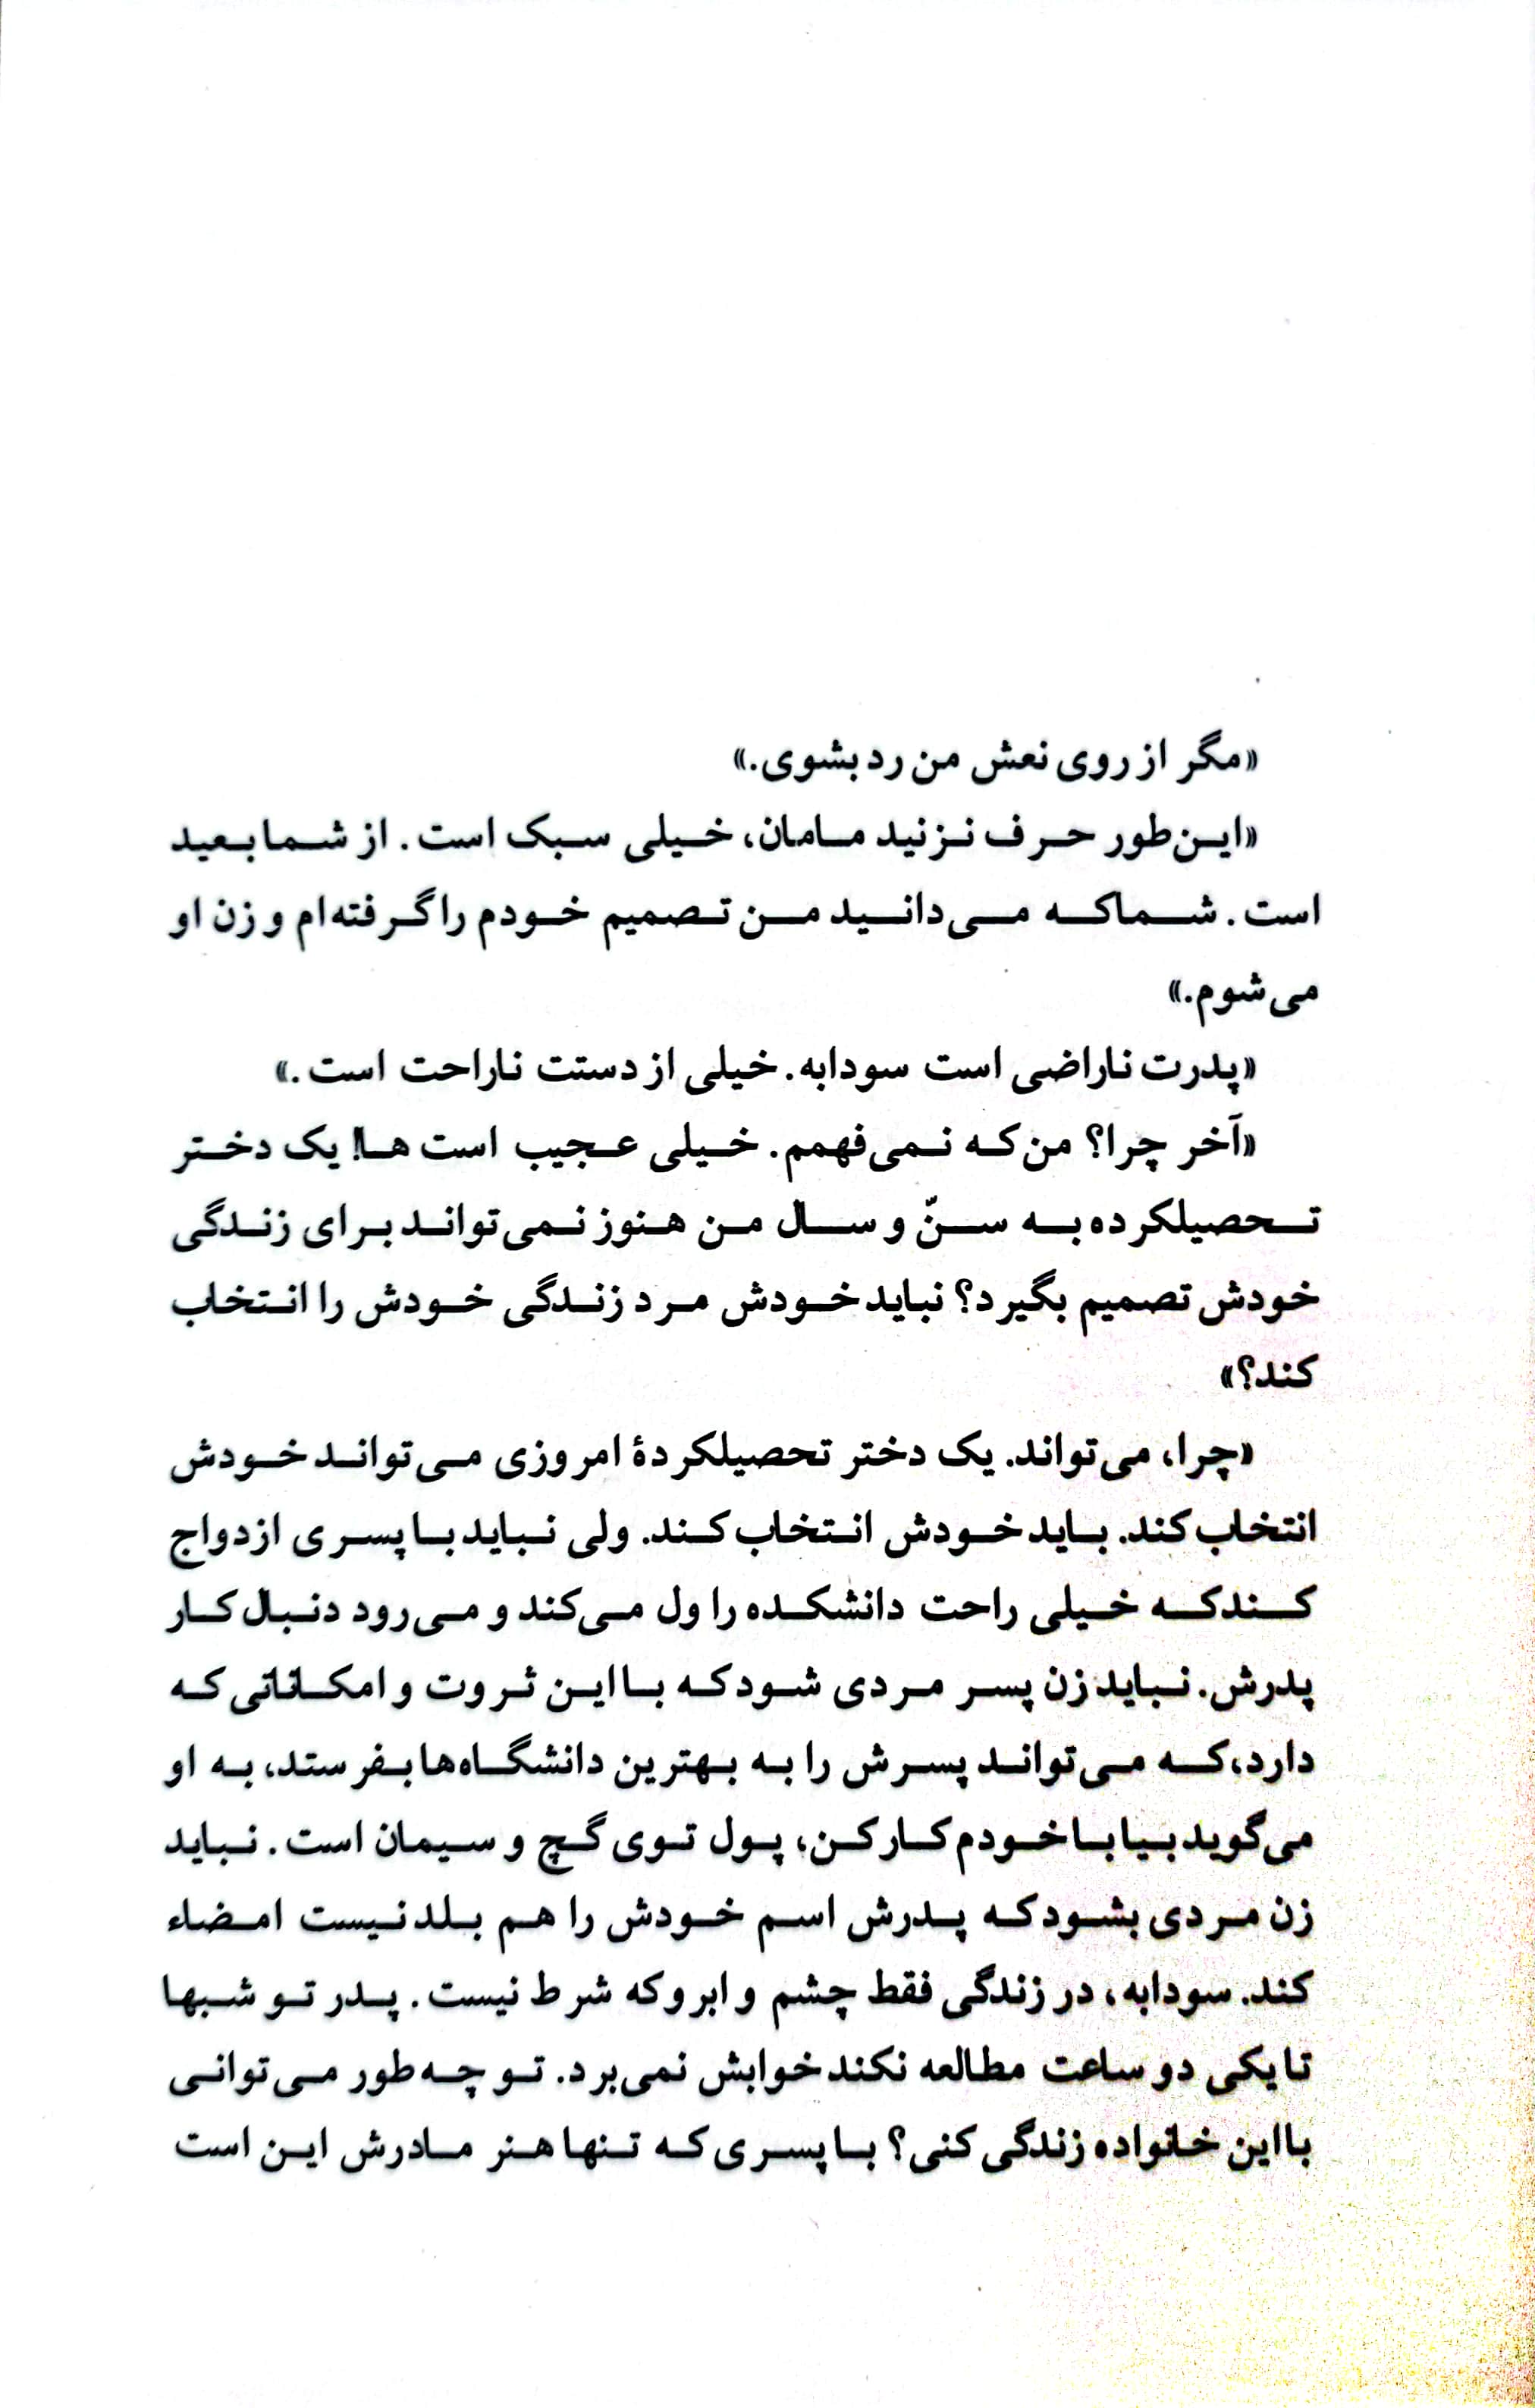 «مگر از روی نعش من رد بشوی.»
«این‌طور حرف نزنید مامان، خیلی سبک است. از شما بعید
است. شما که می‌دانید من تصمیم خودم را گرفته‌ام و زن او
می‌شوم.»
«پدرت ناراضی است سودابه. خیلی از دستت ناراحت است.»
«آخر چرا؟ من که نمی‌فهمم. خیلی عجیب است ها! یک دختر
تحصیلکرده به سنّ و سال من هنوز نمی‌تواند برای زندگی
خودش تصمیم بگیرد؟ نباید خودش مرد زندگی خودش را انتخاب
کند؟»
«چرا، می‌تواند. یک دختر تحصیلکردهٔ امروزی می‌تواند خودش
انتخاب کند. باید خودش انتخاب کند. ولی نباید با پسری ازدواج
کند که خیلی راحت دانشکده را ول می‌کند و می‌رود دنبال کار
پدرش. نباید زن پسر مردی شود که با این ثروت و امکاناتی که
دارد، که می‌تواند پسرش را به بهترین دانشگاه‌ها بفرستد، به او
می‌گوید بیا با خودم کار کن، پول توی گچ و سیمان است. نباید
زن مردی بشود که پدرش اسم خودش را هم بلد نیست امضاء
کند. سودابه، در زندگی فقط چشم و ابرو که شرط نیست. پدر تو شبها
تا یکی دو ساعت مطالعه نکند خوابش نمی‌برد. تو چه‌طور می‌توانی
با این خانواده زندگی کنی؟ با پسری که تنها هنر مادرش این است